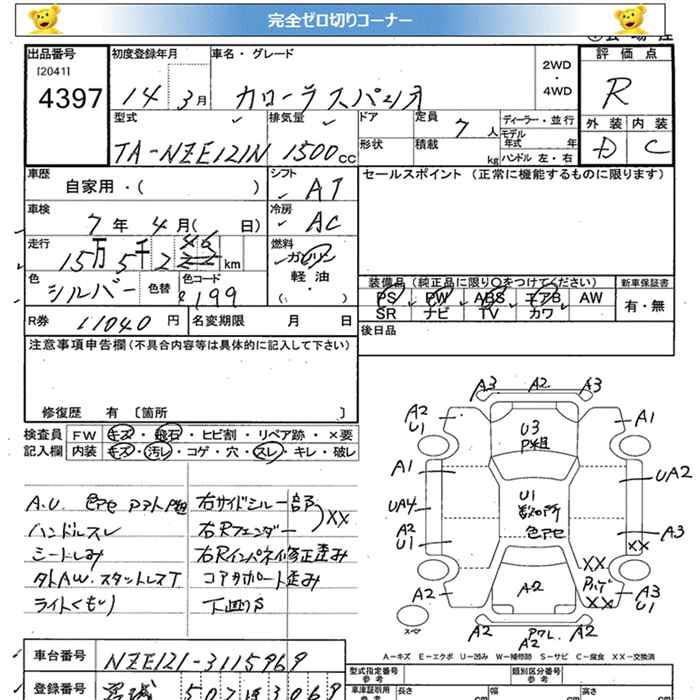 完全ゼロ切りコーナー
出品番号
[2041]
4397
初度登録年月
14 3月
車名・グレード
カローラスパシオ
2WD
・
4WD
評価点
R
外装 内装
D C
型式
TA-NZE121N
排気量
1500cc
ドア
形状
定員
7人
積載
kg
ディーラー・並行
モデル
年式 年
ハンドル 左・右
車歴
自家用・( )
シフト
AT
セールスポイント (正常に機能するものに限ります)
車検
7年4月( 日)
冷房
AC
走行
15万5千2 46 km
燃料
ガソリン
軽・油
( )
色
シルバー
色替
色コード
199
装備品(純正品に限り○をつけてください)
PS PW ABS エアB AW
SR ナビ TV カワ
新車保証書
有・無
R券 11040円
名変期限 月 日
後日品
注意事項申告欄(不具合内容等は具体的に記入して下さい)
修復歴 有〔箇所 〕
検査員
記入欄
FW キズ・飛石・ヒビ割・リペア跡・×要
内装 キズ・汚レ・コゲ・穴・スレ・キレ・破レ
A.U. 色アセ
ハンドルスレ
シートしみ
タトAW.スタットレスT
ライトくもり
右サイドシル一部
右Rフェンダー
XX
右Rインパネ修正歪み
コアサポート歪み
下廻りS
A3 A2 A3
A2
U1
U3
P組
A1
A1
UA2
UA4
U1
数ヶ所
色アセ
A2
U1
A3
XX
XX
XX
A2
A2
A3
U1
スペア
A2
A2
A2
A-キズ E-エクボ U-凹み W-補修跡 S-サビ C-腐食 XX-交換済
車台番号
NZE121-3115969
登録番号
507
3069
型式指定番号
類別区分番号
車庫証明用
参考
長さ
cm
幅
cm
高さ
cm